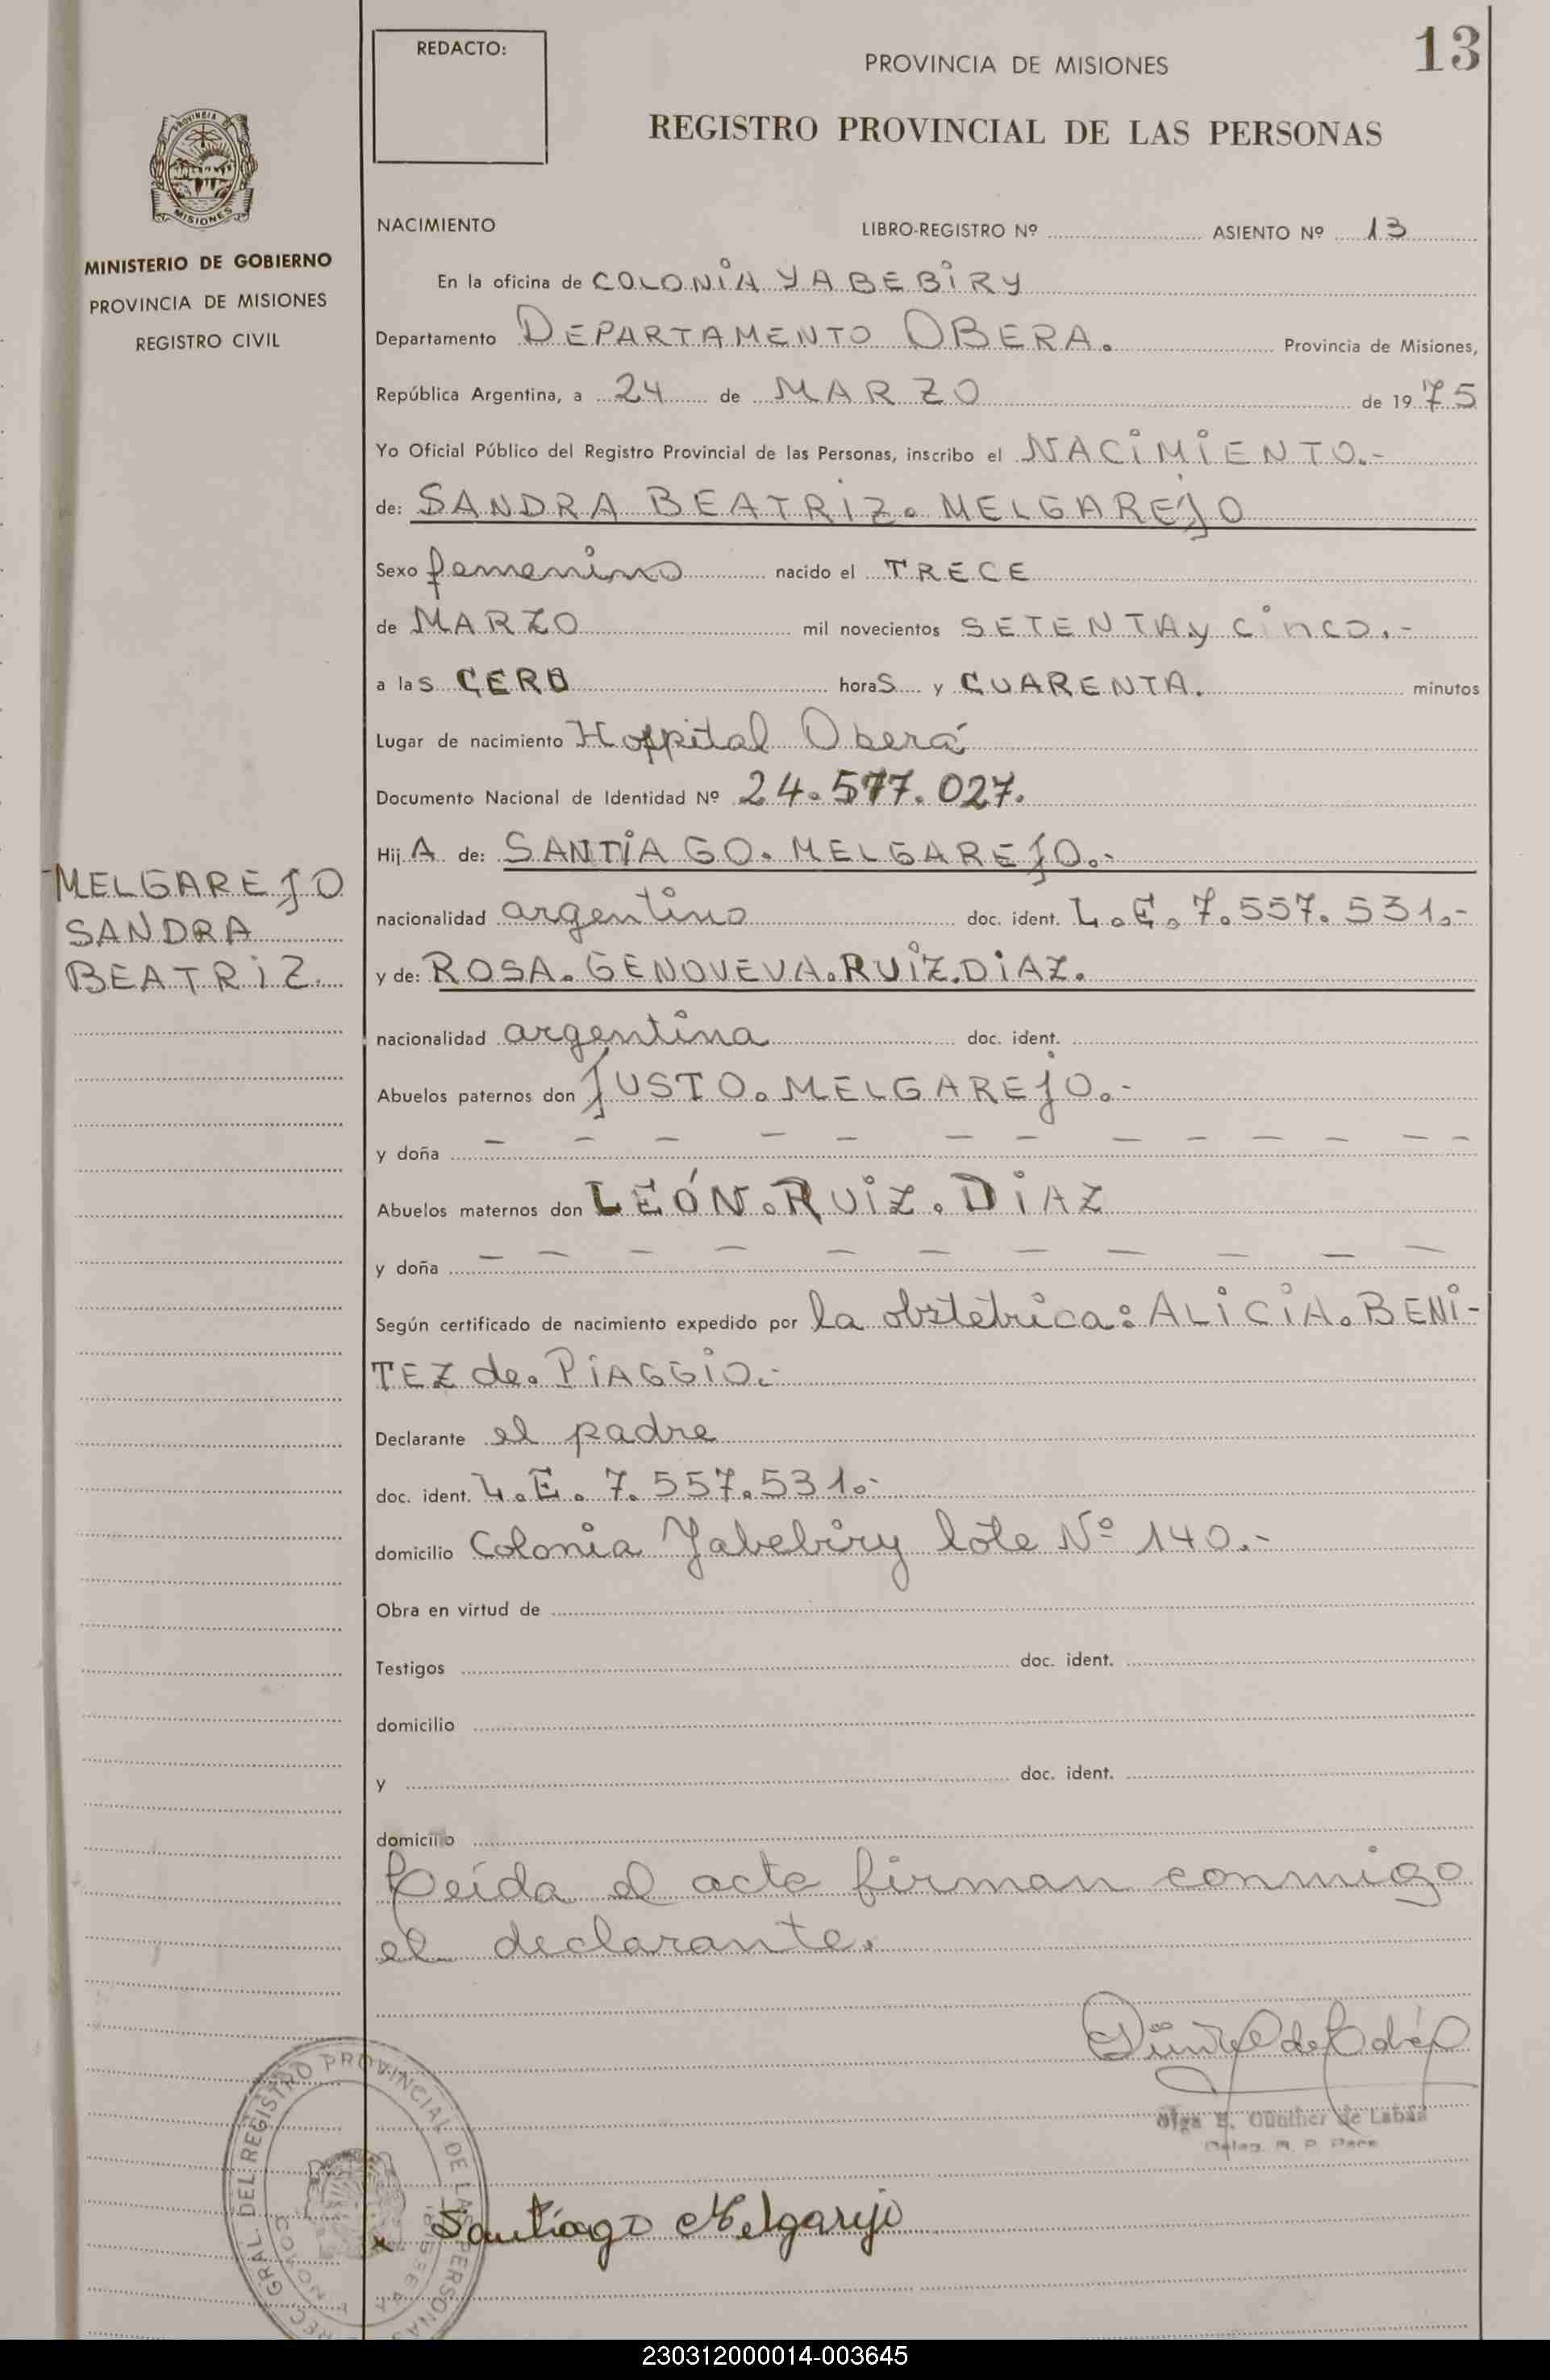 REDACTO:
PROVINCIA DE MISIONES
13
REGISTRO PROVINCIAL DE LAS PERSONAS
PROVINCIA DE
MISIONES
MINISTERIO DE GOBIERNO
PROVINCIA DE MISIONES
REGISTRO CIVIL
NACIMIENTO LIBRO-REGISTRO Nº ASIENTO Nº 13
En la oficina de COLONIA YABEBIRY
Departamento DEPARTAMENTO OBERA. Provincia de Misiones,
República Argentina, a 24 de MARZO de 1975
Yo Oficial Público del Registro Provincial de las Personas, inscribo el NACIMIENTO.-
de: SANDRA BEATRIZ. MELGAREJO
Sexo femenino nacido el TRECE
de MARZO mil novecientos SETENTA y cinco.-
a las CERO horas y CUARENTA. minutos
Lugar de nacimiento Hospital Oberá
Documento Nacional de Identidad Nº 24.577.027.
HijA de: SANTIAGO. MELGAREJO.-
MELGAREJO
SANDRA
BEATRIZ.
nacionalidad argentino doc. ident. L.E. 7.557.531.-
y de: ROSA. GENOVEVA. RUIZ. DIAZ.
nacionalidad argentina doc. ident.
Abuelos paternos don JUSTO. MELGAREJO.-
y doña - - - - - - - - - - - - -
Abuelos maternos don LEÓN. RUIZ. DIAZ
y doña - - - - - - - - - - -
Según certificado de nacimiento expedido por la obstétrica: ALICIA. BENI-
TEZ de. PIAGGIO.-
Declarante el padre
doc. ident. L.E. 7.557.531.-
domicilio Colonia Yabebiry lote Nº 140.-
Obra en virtud de
Testigos doc. ident.
domicilio
y doc. ident.
domicilio
Leída el acta firman conmigo
el declarante.
Olga E. Günther de Labaá
GRAL. DEL REGISTRO PROVINCIAL DE LAS PERSONAS
x Santiago Melgarejo
230312000014-003645